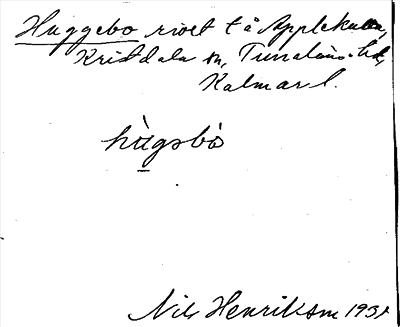 Huggebo rivet t å Applekulla,
Kristdala sn, Tunaläns hd,
Kalmar l.
hùgsbò
Nils Henriksson 1931